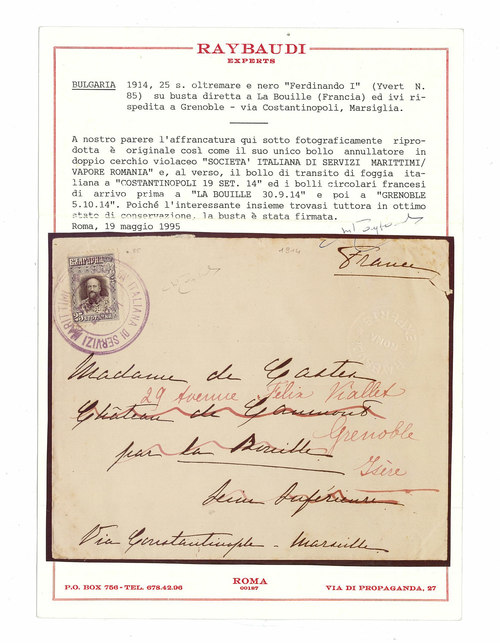 RAYBAUDI
EXPERTS
BULGARIA 1914, 25 s. oltremare e nero "Ferdinando I" (Yvert N.
85) su busta diretta a La Bouille (Francia) ed ivi ri-
spedita a Grenoble - via Costantinopoli, Marsiglia.
A nostro parere l'affrancatura qui sotto fotograficamente ripro-
dotta è originale così come il suo unico bollo annullatore in
doppio cerchio violaceo "SOCIETA' ITALIANA DI SERVIZI MARITTIMI/
VAPORE ROMANIA" e, al verso, il bollo di transito di foggia ita-
liana a "COSTANTINOPOLI 19 SET. 14" ed i bolli circolari francesi
di arrivo prima a "LA BOUILLE 30.9.14" e poi a "GRENOBLE
5.10.14". Poiché l'interessante insieme trovasi tuttora in ottimo
stato di conservazione, la busta è stata firmata.
Roma, 19 maggio 1995
1914
France
25
ITALIANA DI SERVIZI MARITTIMI
Madame de Castex
29 Avenue Félix Viallet
Château de Caumont
Grenoble
par la Bouille
Isère
Seine Inférieure
Via Constantinople - Marseille
ROMA
P.O. BOX 756-TEL. 678.42.96
00187
VIA DI PROPAGANDA, 27